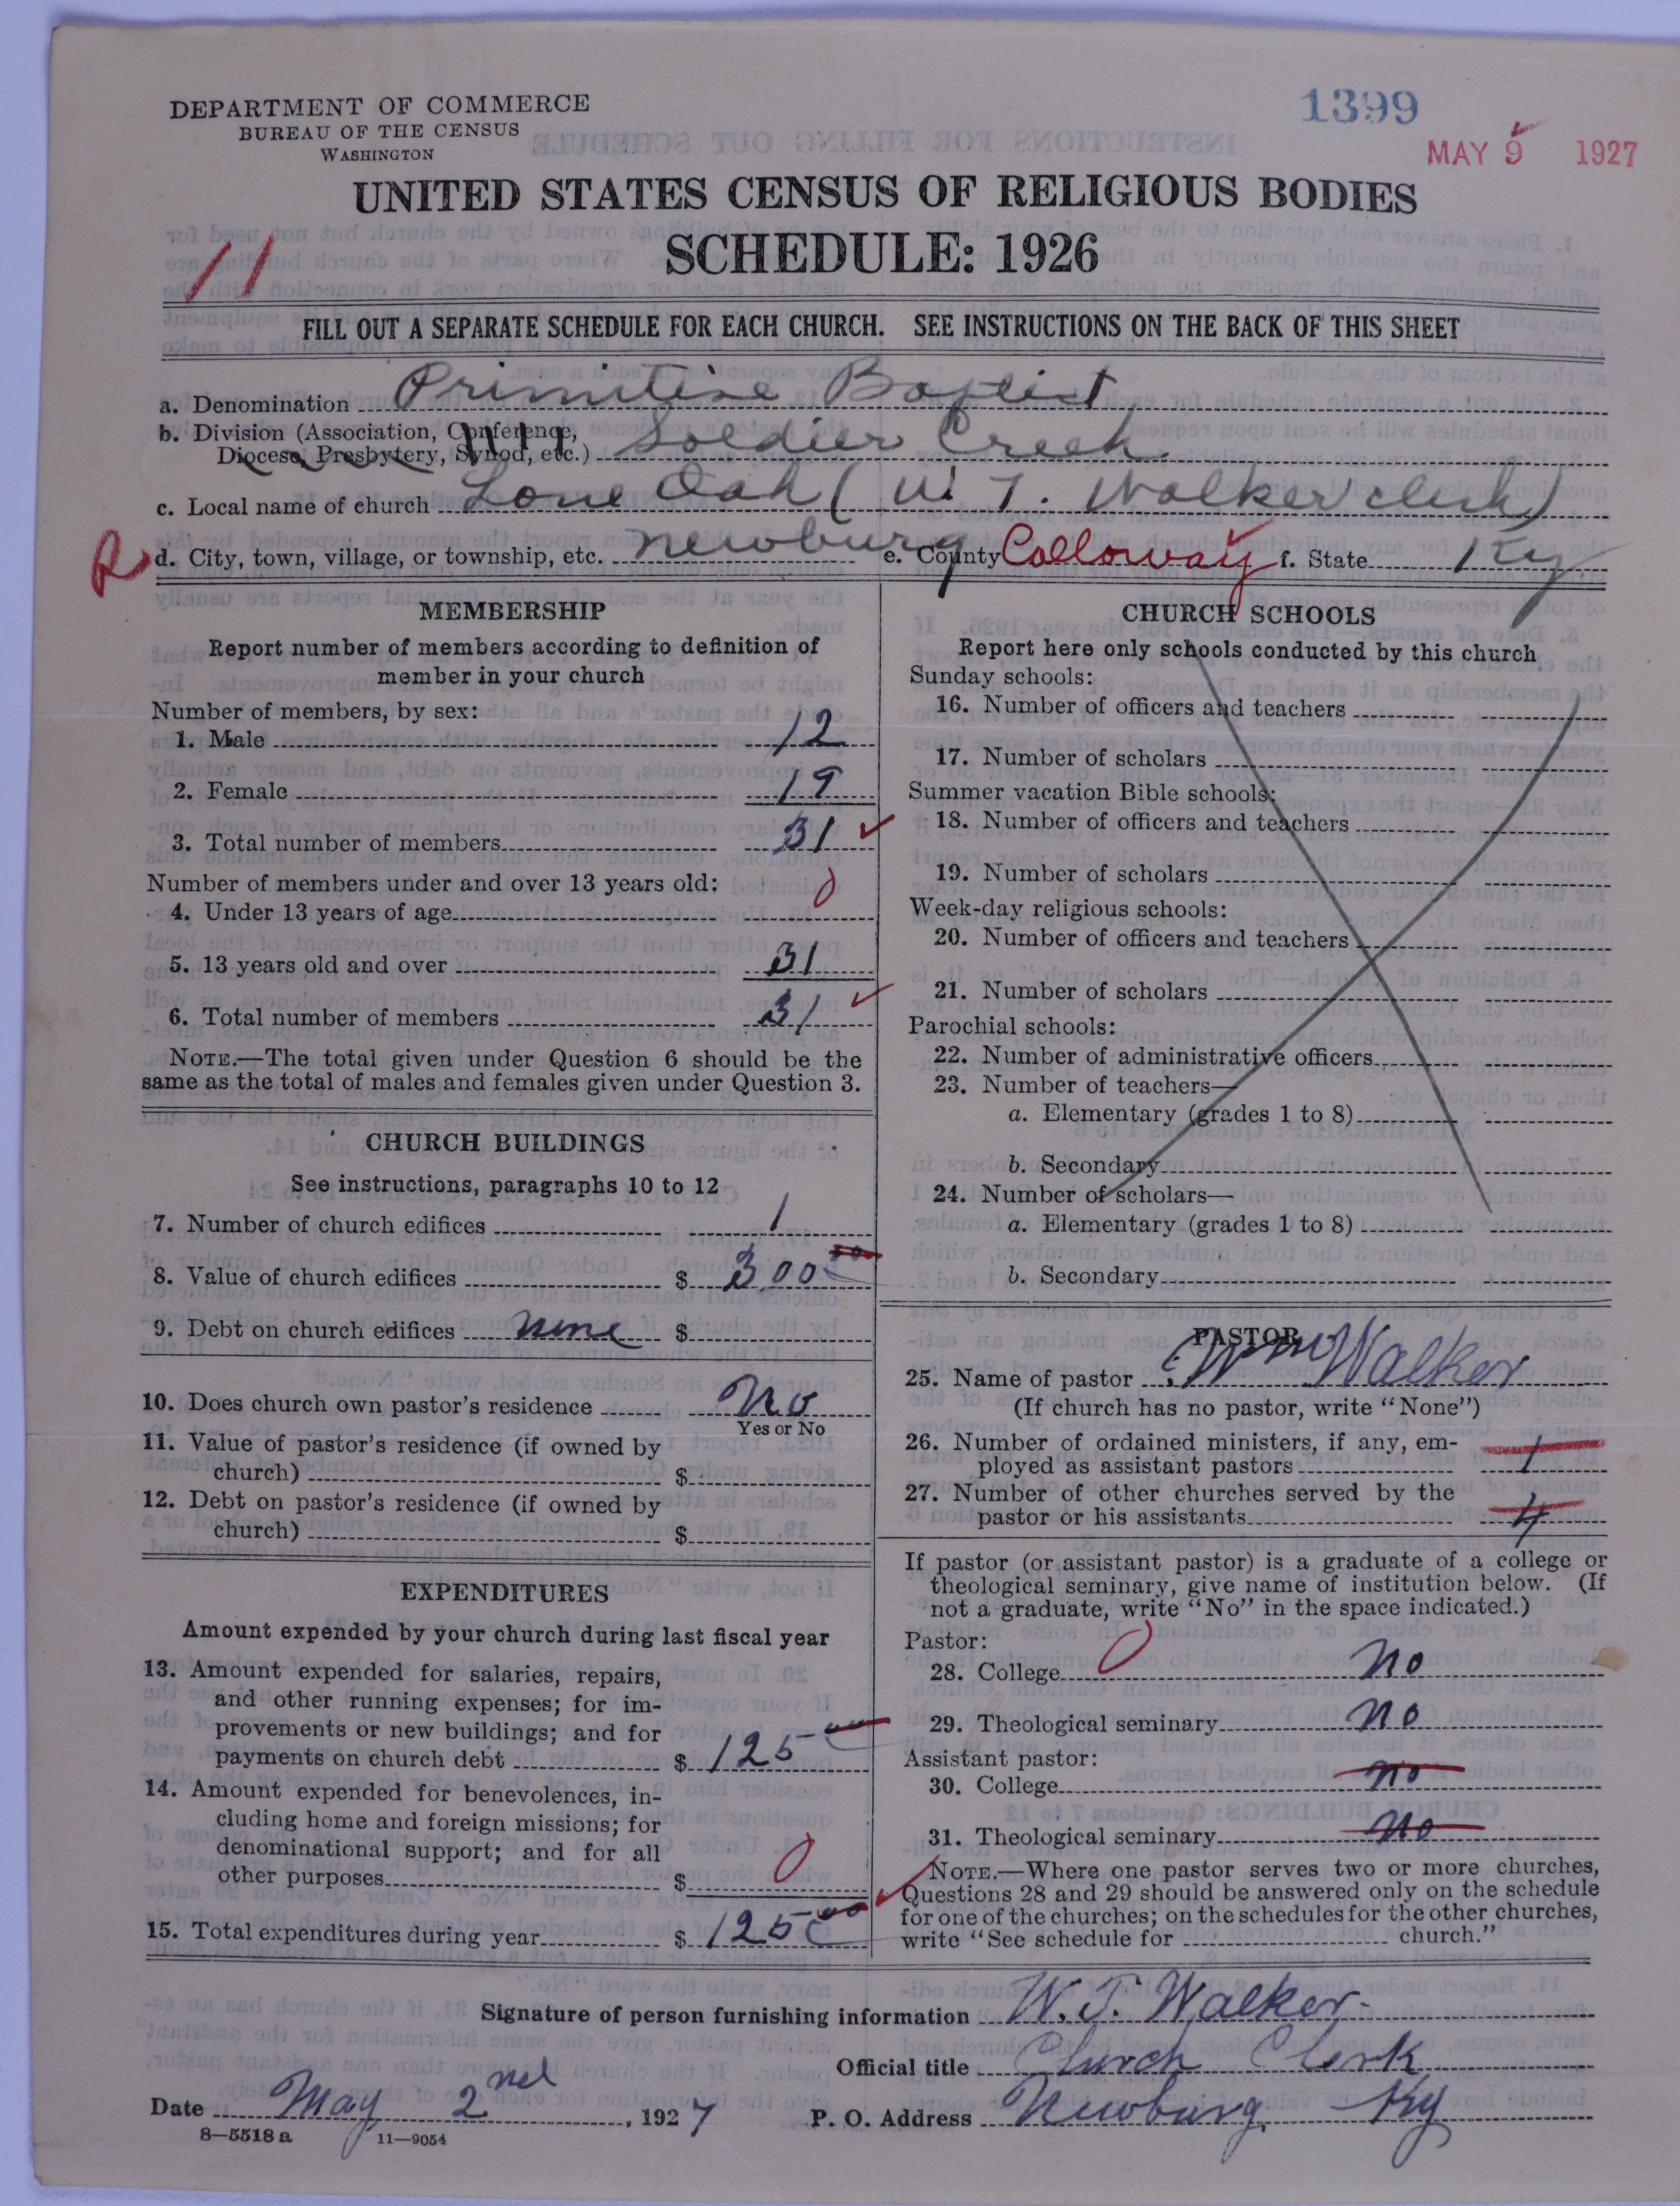 DEPARTMENT OF COMMERCE
BUREAU OF THE CENSUS
WASHINGTON
1399
MAY 9 1927
UNITED STATES CENSUS OF RELIGIOUS BODIES
SCHEDULE: 1926
11
FILL OUT A SEPARATE SCHEDULE FOR EACH CHURCH. SEE INSTRUCTIONS ON THE BACK OF THIS SHEET
a. Denomination Primitive Baptist
b. Division (Association, Conference,
Diocese, Presbytery, Synod, etc.) Soldier Creek
c. Local name of church Lone Oak (W T. Walker clerk)
R d. City, town, village, or township, etc. Newburg e. County Calloway f. State Ky
MEMBERSHIP
Report number of members according to definition of
member in your church
Number of members, by sex:
1. Male 12
2. Female 19
3. Total number of members 31
Number of members under and over 13 years old:
4. Under 13 years of age 0
5. 13 years old and over 31
6. Total number of members 31
NOTE.—The total given under Question 6 should be the
same as the total of males and females given under Question 3.
CHURCH BUILDINGS
See instructions, paragraphs 10 to 12
7. Number of church edifices 1
8. Value of church edifices $ 300 00
9. Debt on church edifices none $
10. Does church own pastor's residence No
Yes or No
11. Value of pastor's residence (if owned by
church) $
12. Debt on pastor's residence (if owned by
church) $
EXPENDITURES
Amount expended by your church during last fiscal year
13. Amount expended for salaries, repairs,
and other running expenses; for im-
provements or new buildings; and for
payments on church debt $ 125 00
14. Amount expended for benevolences, in-
cluding home and foreign missions; for
denominational support; and for all
other purposes $ 0
15. Total expenditures during year $ 125 00
CHURCH SCHOOLS
Report here only schools conducted by this church
Sunday schools:
16. Number of officers and teachers
17. Number of scholars
Summer vacation Bible schools:
18. Number of officers and teachers
19. Number of scholars
Week-day religious schools:
20. Number of officers and teachers
21. Number of scholars
Parochial schools:
22. Number of administrative officers
23. Number of teachers—
a. Elementary (grades 1 to 8)
b. Secondary
24. Number of scholars—
a. Elementary (grades 1 to 8)
b. Secondary
PASTOR
25. Name of pastor Wm Walker
(If church has no pastor, write "None")
26. Number of ordained ministers, if any, em-
ployed as assistant pastors 1
27. Number of other churches served by the
pastor or his assistants 4
If pastor (or assistant pastor) is a graduate of a college or
theological seminary, give name of institution below. (If
not a graduate, write "No" in the space indicated.)
Pastor:
28. College 0 no
29. Theological seminary no
Assistant pastor:
30. College no
31. Theological seminary no
NOTE.—Where one pastor serves two or more churches,
Questions 28 and 29 should be answered only on the schedule
for one of the churches; on the schedules for the other churches,
write "See schedule for church."
Signature of person furnishing information W. T. Walker
Official title Church Clerk
Date May 2nd, 1927 P. O. Address Newburg Ky
8—5518a 11—9054